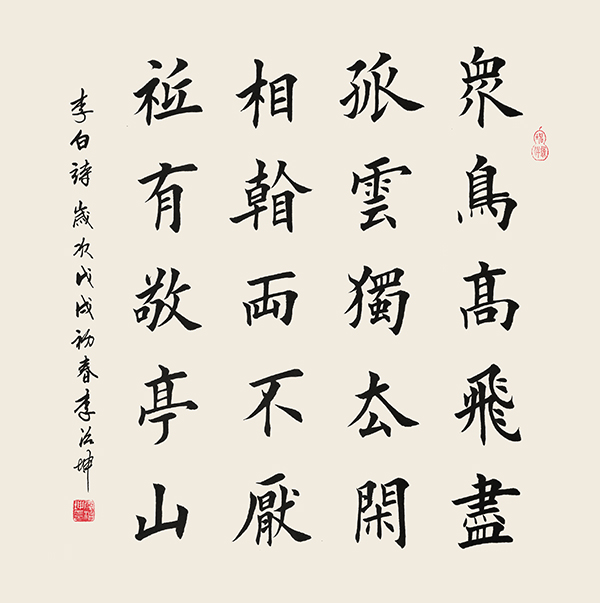 衆鳥高飛盡
孤雲獨厺閑
相看両不厭
祗有敬亭山
李白詩 歲次戊戌初春李治坤